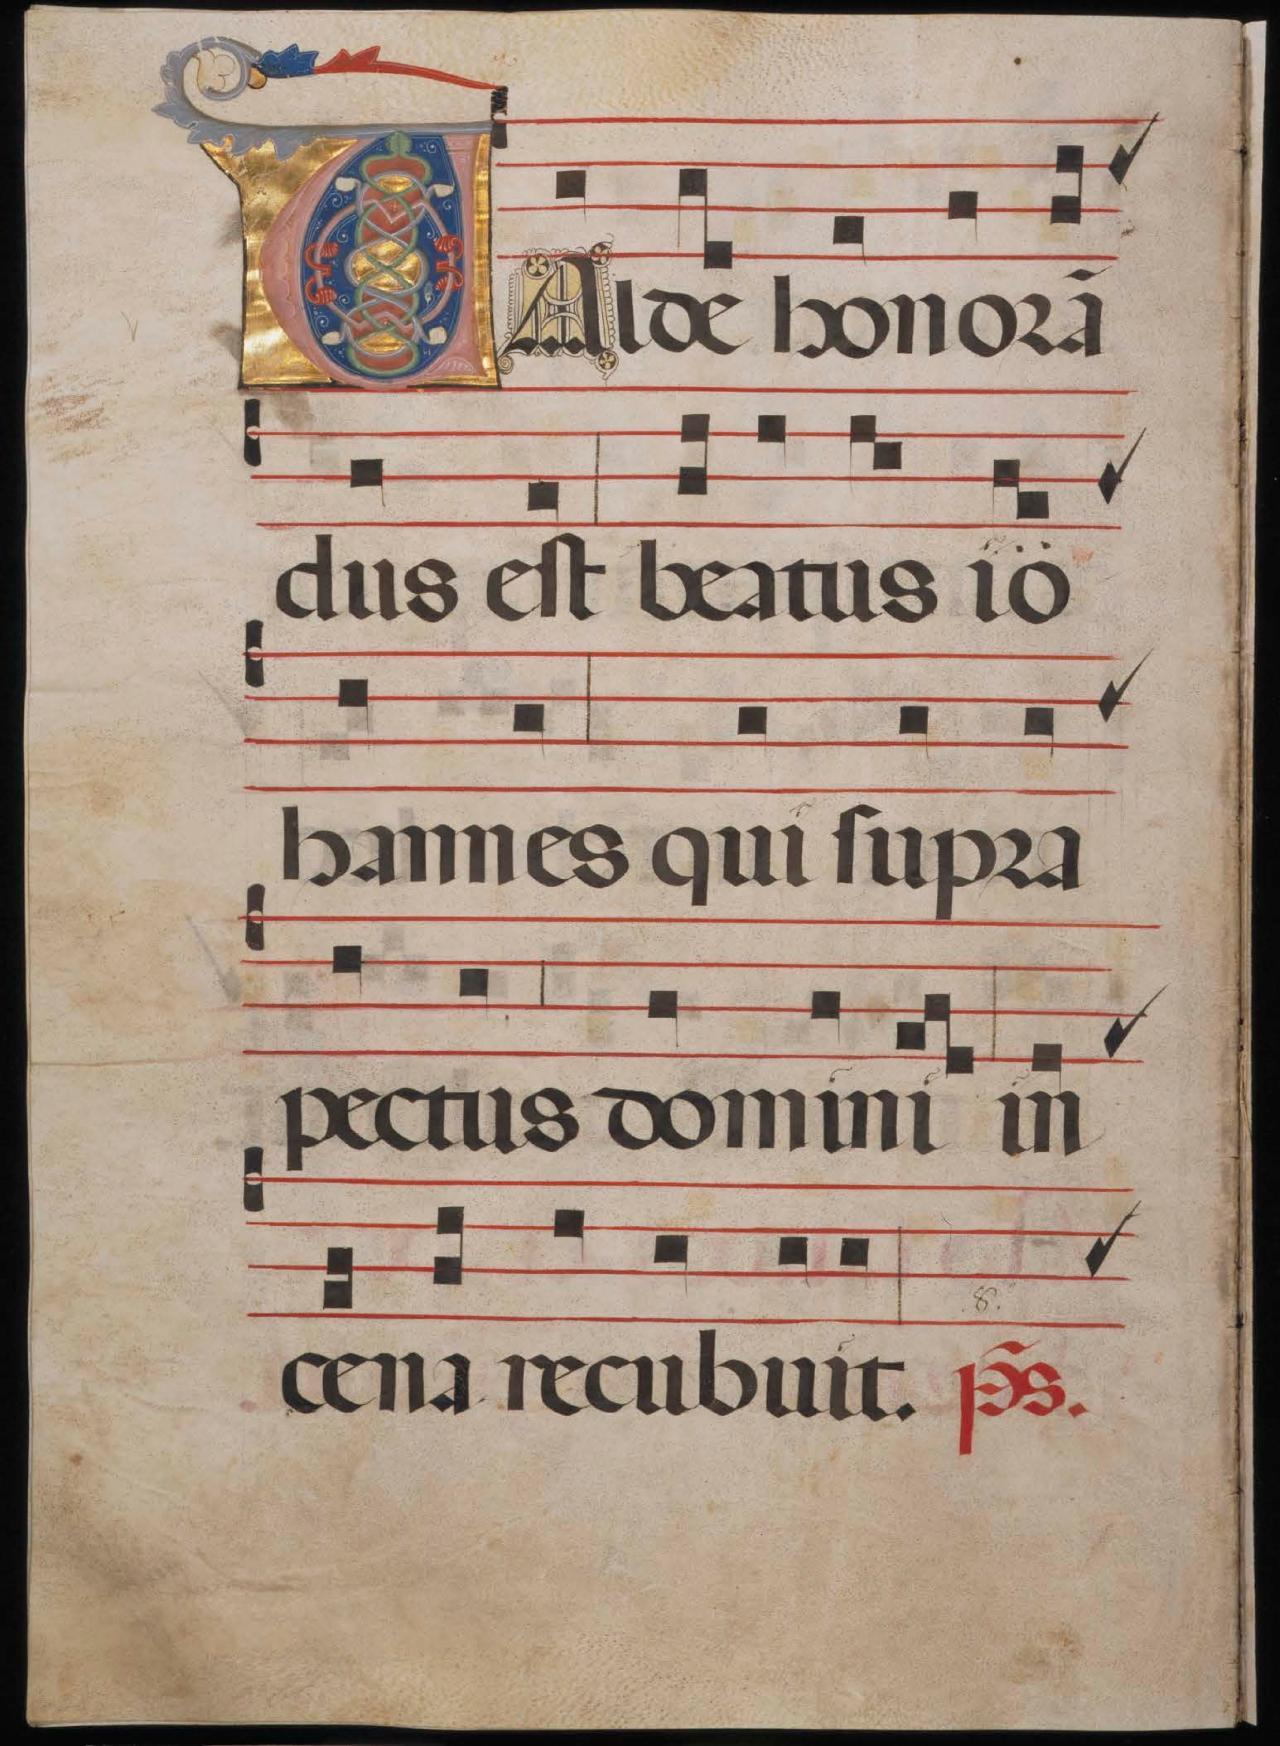 VAlde honorā
dus est beatus io
hannes qui supra
pectus domini in
cena recubuit. ps̄.